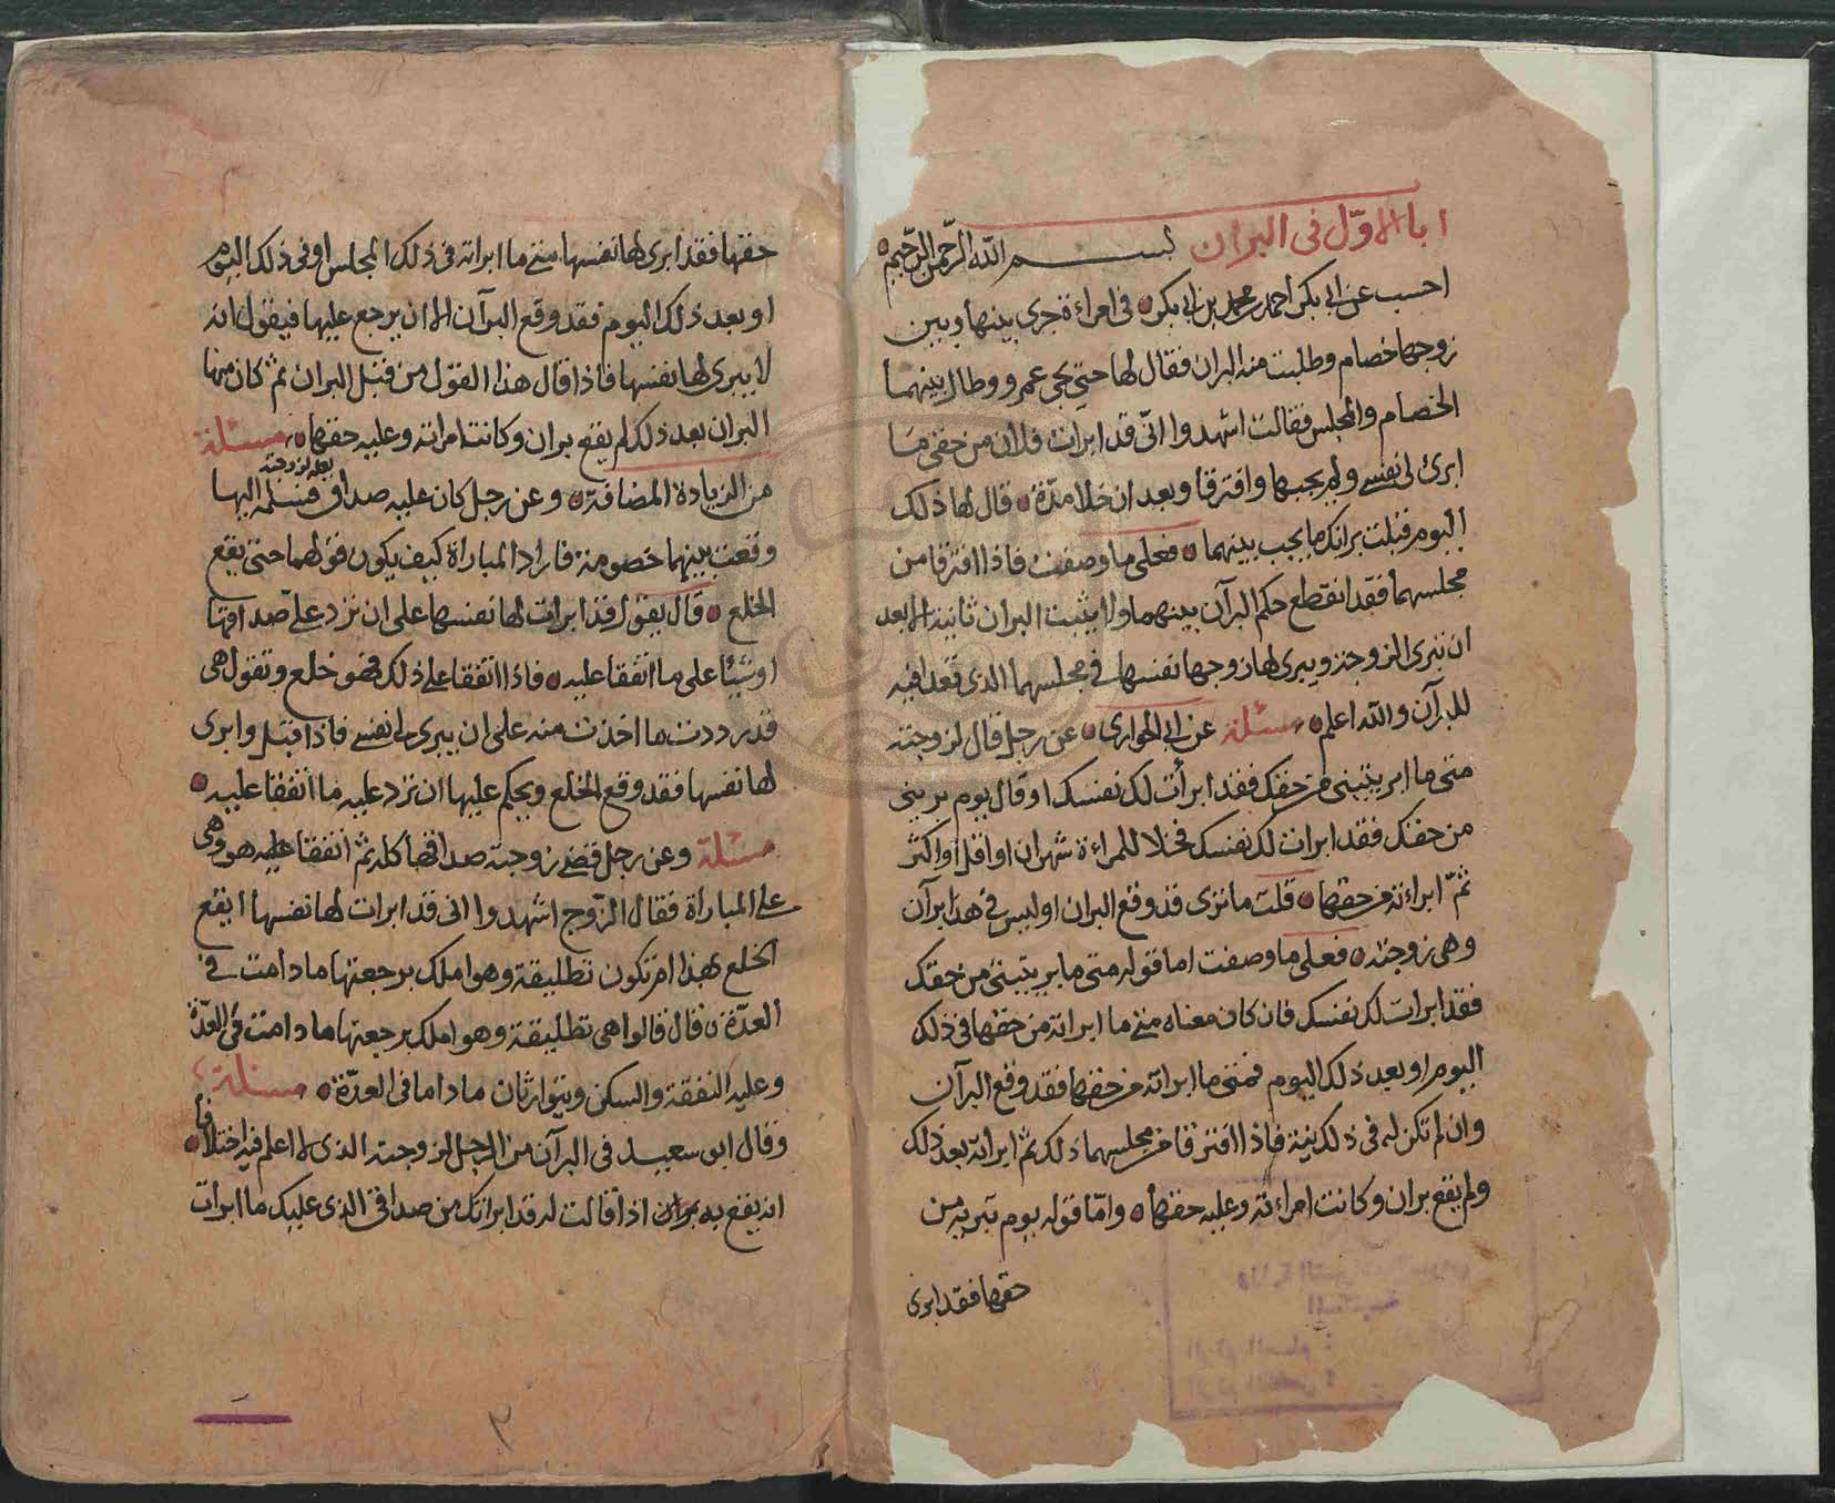 اباب الاوّل فى البران بسم الله الرّحمن الرّحيم
احسب عن ابي بكر احمد بن محمد بن ابي بكر في امراءة جرى بينها وبين
زوجها خصام وطلبت منه البران فقال لها حتي يجي عمرو وطال بينهما
الخصام والمجلس فقالت اشهدوا انّي قد ابرات فلان من حقي ما
ابرئ لي نفسي ولم يجبها وافترقا وبعد ان خلا مدّة قال لها ذلك
اليوم قبلت برانك ما يجب بينهما فعلى ما وصفت فاذا افترقا من
مجلسهما فقد انقطع حكم البرآن بينهما ولا يثبت البران ثانية الا بعد
ان تبري الزوجة ويبرى لها زوجها نفسها في مجلسهما الذي قعدا فيه
للبرآن والله اعلم مسئلة عن ابي الحوارى عن رجل قال لزوجته
متى ما ابريتيني من حقك فقد ابرأت لك نفسك او قال يوم تبريني
من حقك فقد ابرات لك نفسك فخلا للمراءة شهران او اقل او اكثر
ثمّ ابراءته من حقها قلت ما ترى قد وقع البران او ليس في هذا برآن
وهي زوجته فعلى ما وصفت اما قوله متى ما بريتيني من حقك
فقد ابرات لك نفسك فان كان معناه متي ما ابراته من حقها فى ذلك
اليوم او بعد ذلك اليوم فمتى ما ابراته من حقها فقد وقع البرآن
وان لم تكن له فى ذلك نية فاذا افترقا من مجلسهما ذلك ثم ابراته بعد ذلك
ولم يقع بران وكانت امراءته وعليه حقها وامّا قوله يوم تبريه من
حقها فقد ابرى
حقها فقد ابرى لها نفسها متي ما ابراته فى ذلك المجلس او فى ذلك اليوم
او بعد ذلك اليوم فقد وقع البرآن الا ان يرجع عليها فيقول انه
لا يبرى لها نفسها فاذا قال هذا القول من قبل البران ثم كان منها
البران بعد ذلك لم يقع بران وكانت امراته وعليه حقها مسئلة
من الزيادة المضافة وعن رجل كان عليه صداق لزوجته فسلمه اليها
وقعت بينهما خصومة فاراد المباراة كيف يكون قولهما حتى يقع
الخلع قال يقول قد ابرات لها نفسها على ان ترد علي صداقها
او شيئا على ما اتفقا عليه فاذا اتفقا على ذلك فهو خلع وتقول هى
قد رددت ما اخذت منه على ان يبرى لي نفسي فاذا قبل وابرى
لها نفسها فقد وقع الخلع ويحكم عليها ان ترد عليه ما اتفقا عليه
مسئلة وعن رجل قضى زوجته صداقها كله ثم اتفقا عليه هو وهى
على المباراة فقال الزّوج اشهدوا انى قد ابرات لها نفسها ايقع
الخلع بهذا ام تكون تطليقة وهو املك برجعتها ما دامت في
العدّة قال قالوا هى تطليقة وهو املك برجعتها ما دامت فى العدّة
وعليه النفقة والسكن ويتوارثان ما داما فى العدّة مسئلة
وقال ابو سعيد فى البرآن من الرجل لزوجته الذى لا اعلم فيه اختلافا
انه يقع به بران اذا قالت له قد ابراتك من صداقى الذى عليك ما ابرات
٢